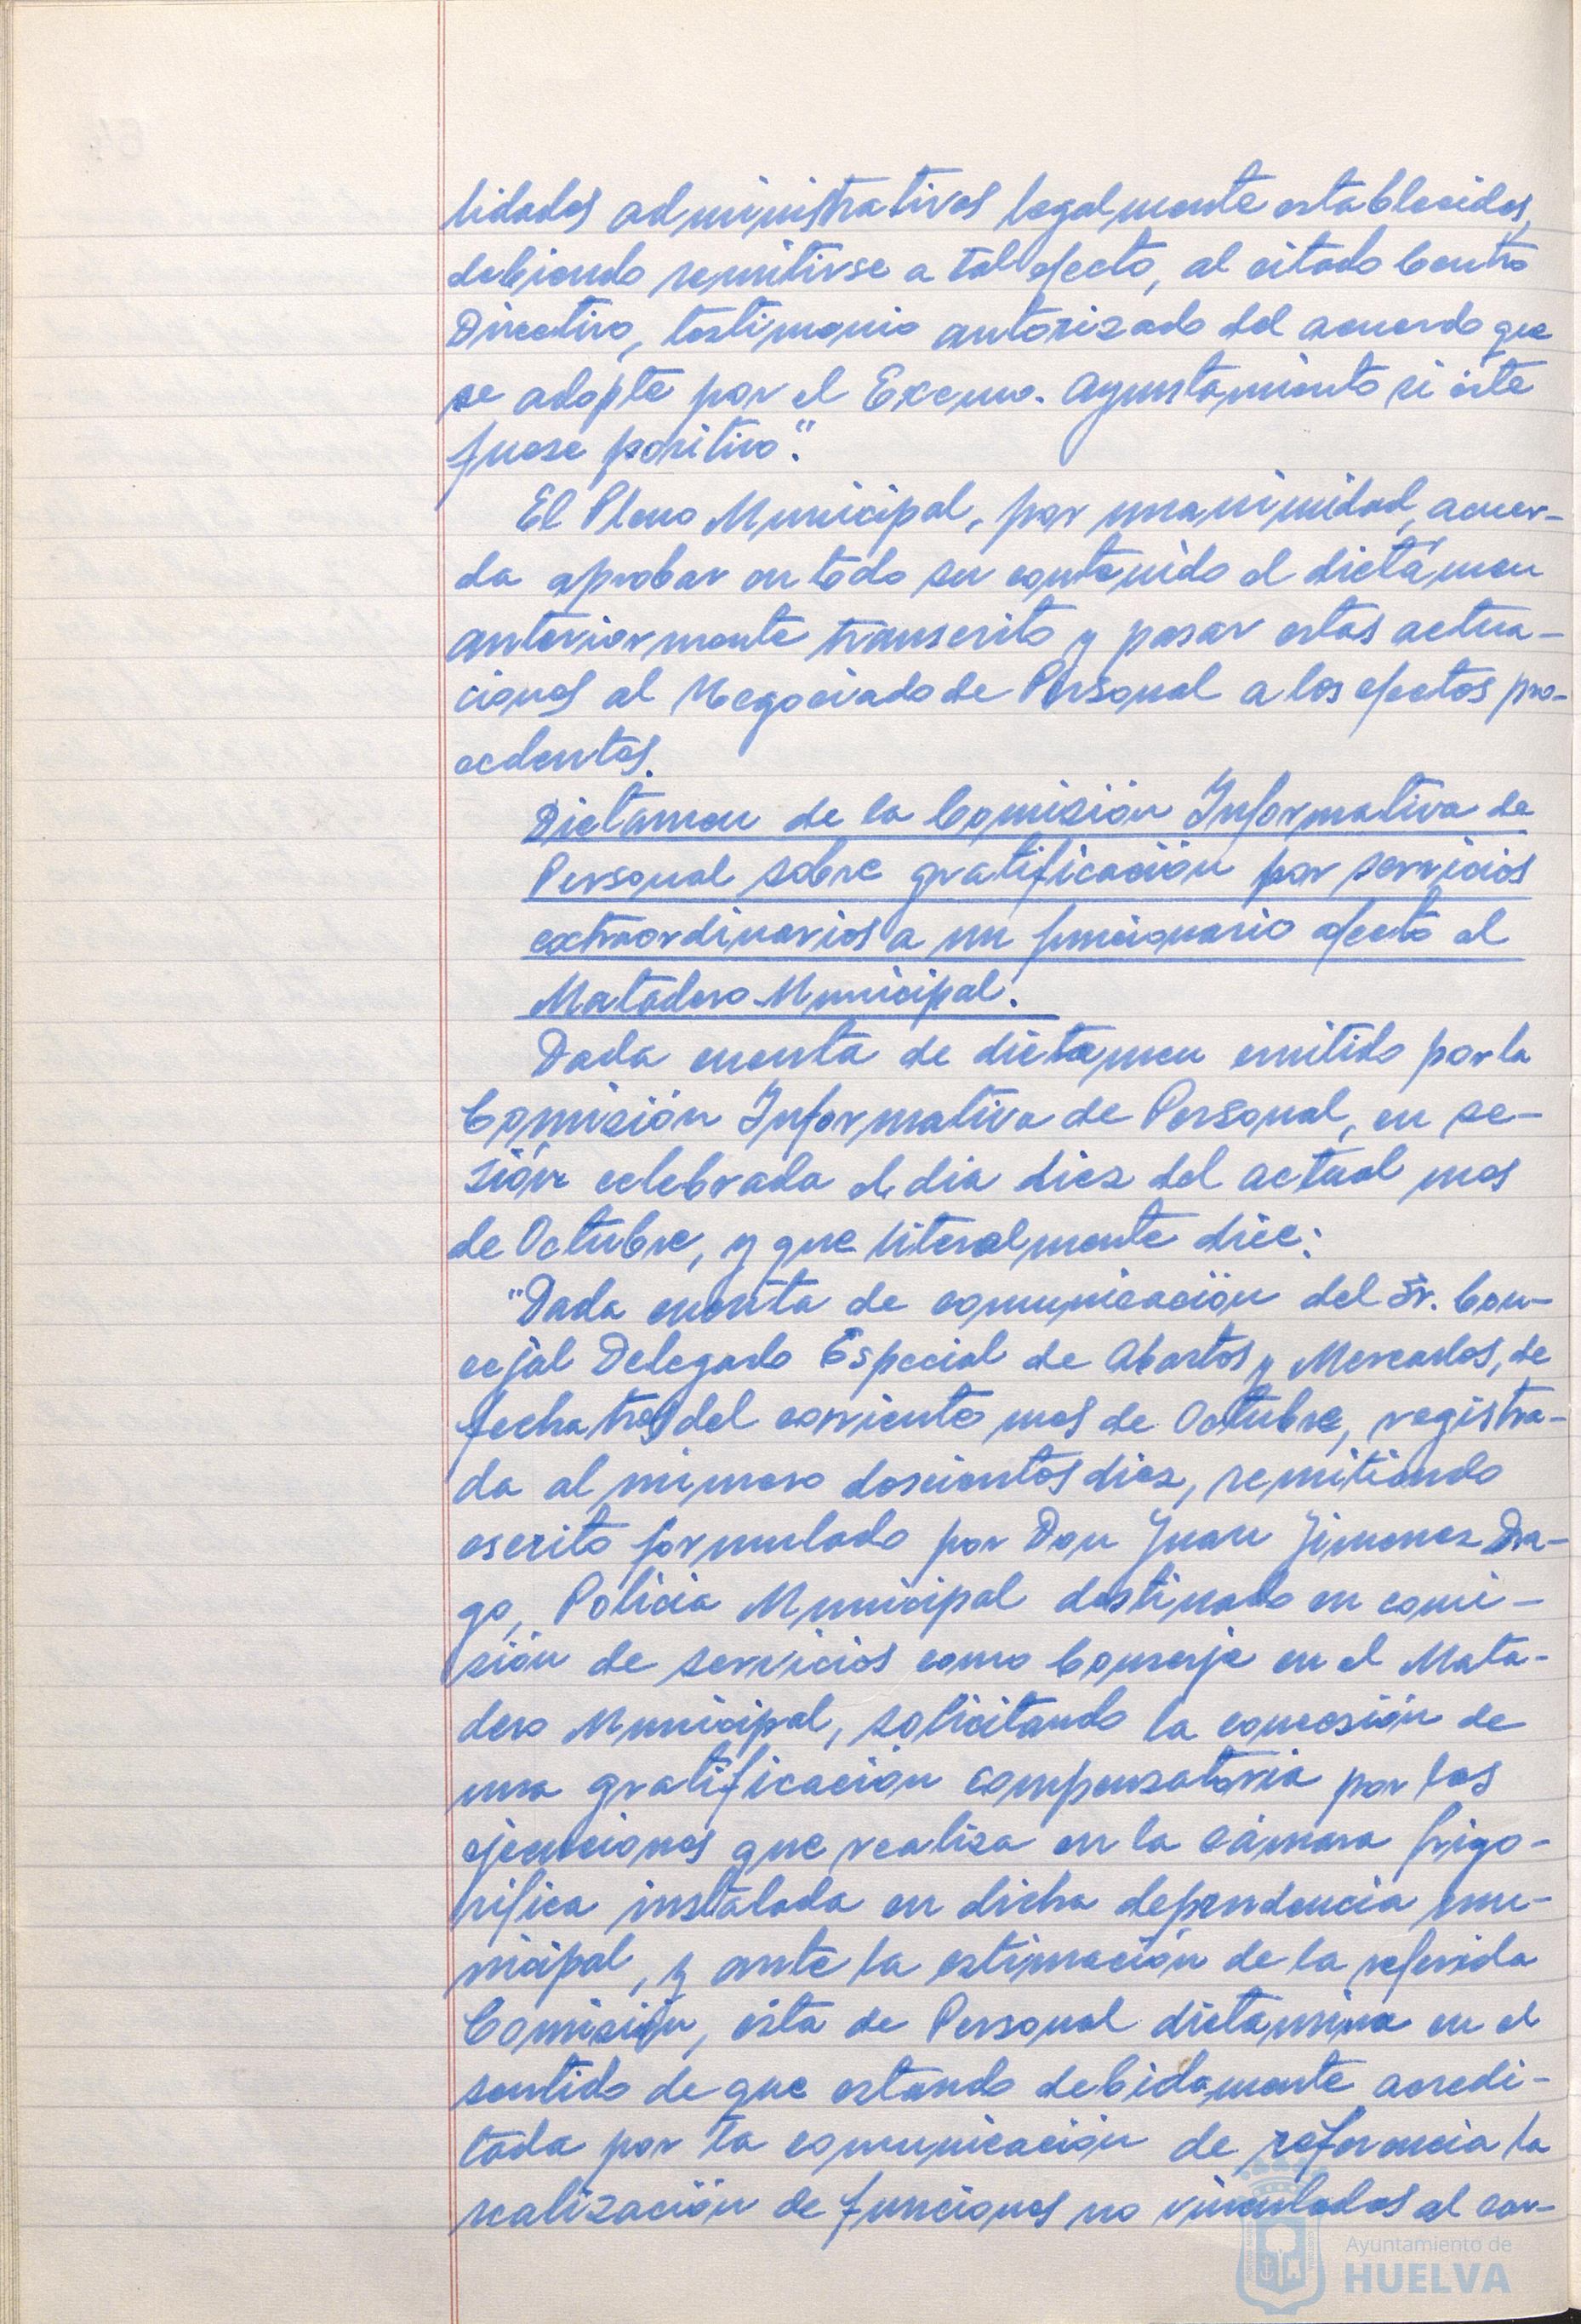 lidades administrativas legalmente establecidas,
debiendo remitirse a tal efecto, al citado Centro
Directivo, testimonio autorizado del acuerdo que
se adopte por el Excmo. Ayuntamiento si éste
fuese positivo".
El Pleno Municipal, por unanimidad, acuer-
da aprobar en todo su contenido el dictámen
anteriormente transcrito y pasar estas actua-
ciones al Negociado de Personal a los efectos pro-
cedentes.
Dictamen de la Comisión Informativa de
Personal sobre gratificación por servicios
extraordinarios a un funcionario afecto al
Matadero Municipal.
Dada cuenta de dictamen emitido por la
Comisión Informativa de Personal, en se-
sión celebrada el dia diez del actual mes
de Octubre, y que literalmente dice:
"Dada cuenta de comunicación del Sr. Con-
cejal Delegado Especial de Abastos y Mercados, de
fecha tres del corriente mes de Octubre, registra-
da al número doscientos diez, remitiendo
escrito formulado por Don Juan Jimenez Dra-
go, Policia Municipal destinado en comi-
sión de servicios como Conserje en el Mata-
dero Municipal, solicitando la concesión de
una gratificación compensatoria por las
ejecuciones que realiza en la cámara frigo-
rifica instalada en dicha dependencia mu-
nicipal, y ante la estimación de la referida
Comisión, ésta de Personal dictamina en el
sentido de que estando debidamente acredi-
tada por la comunicación de referencia la
realización de funciones no vinculadas al car-
Ayuntamiento de
HUELVA